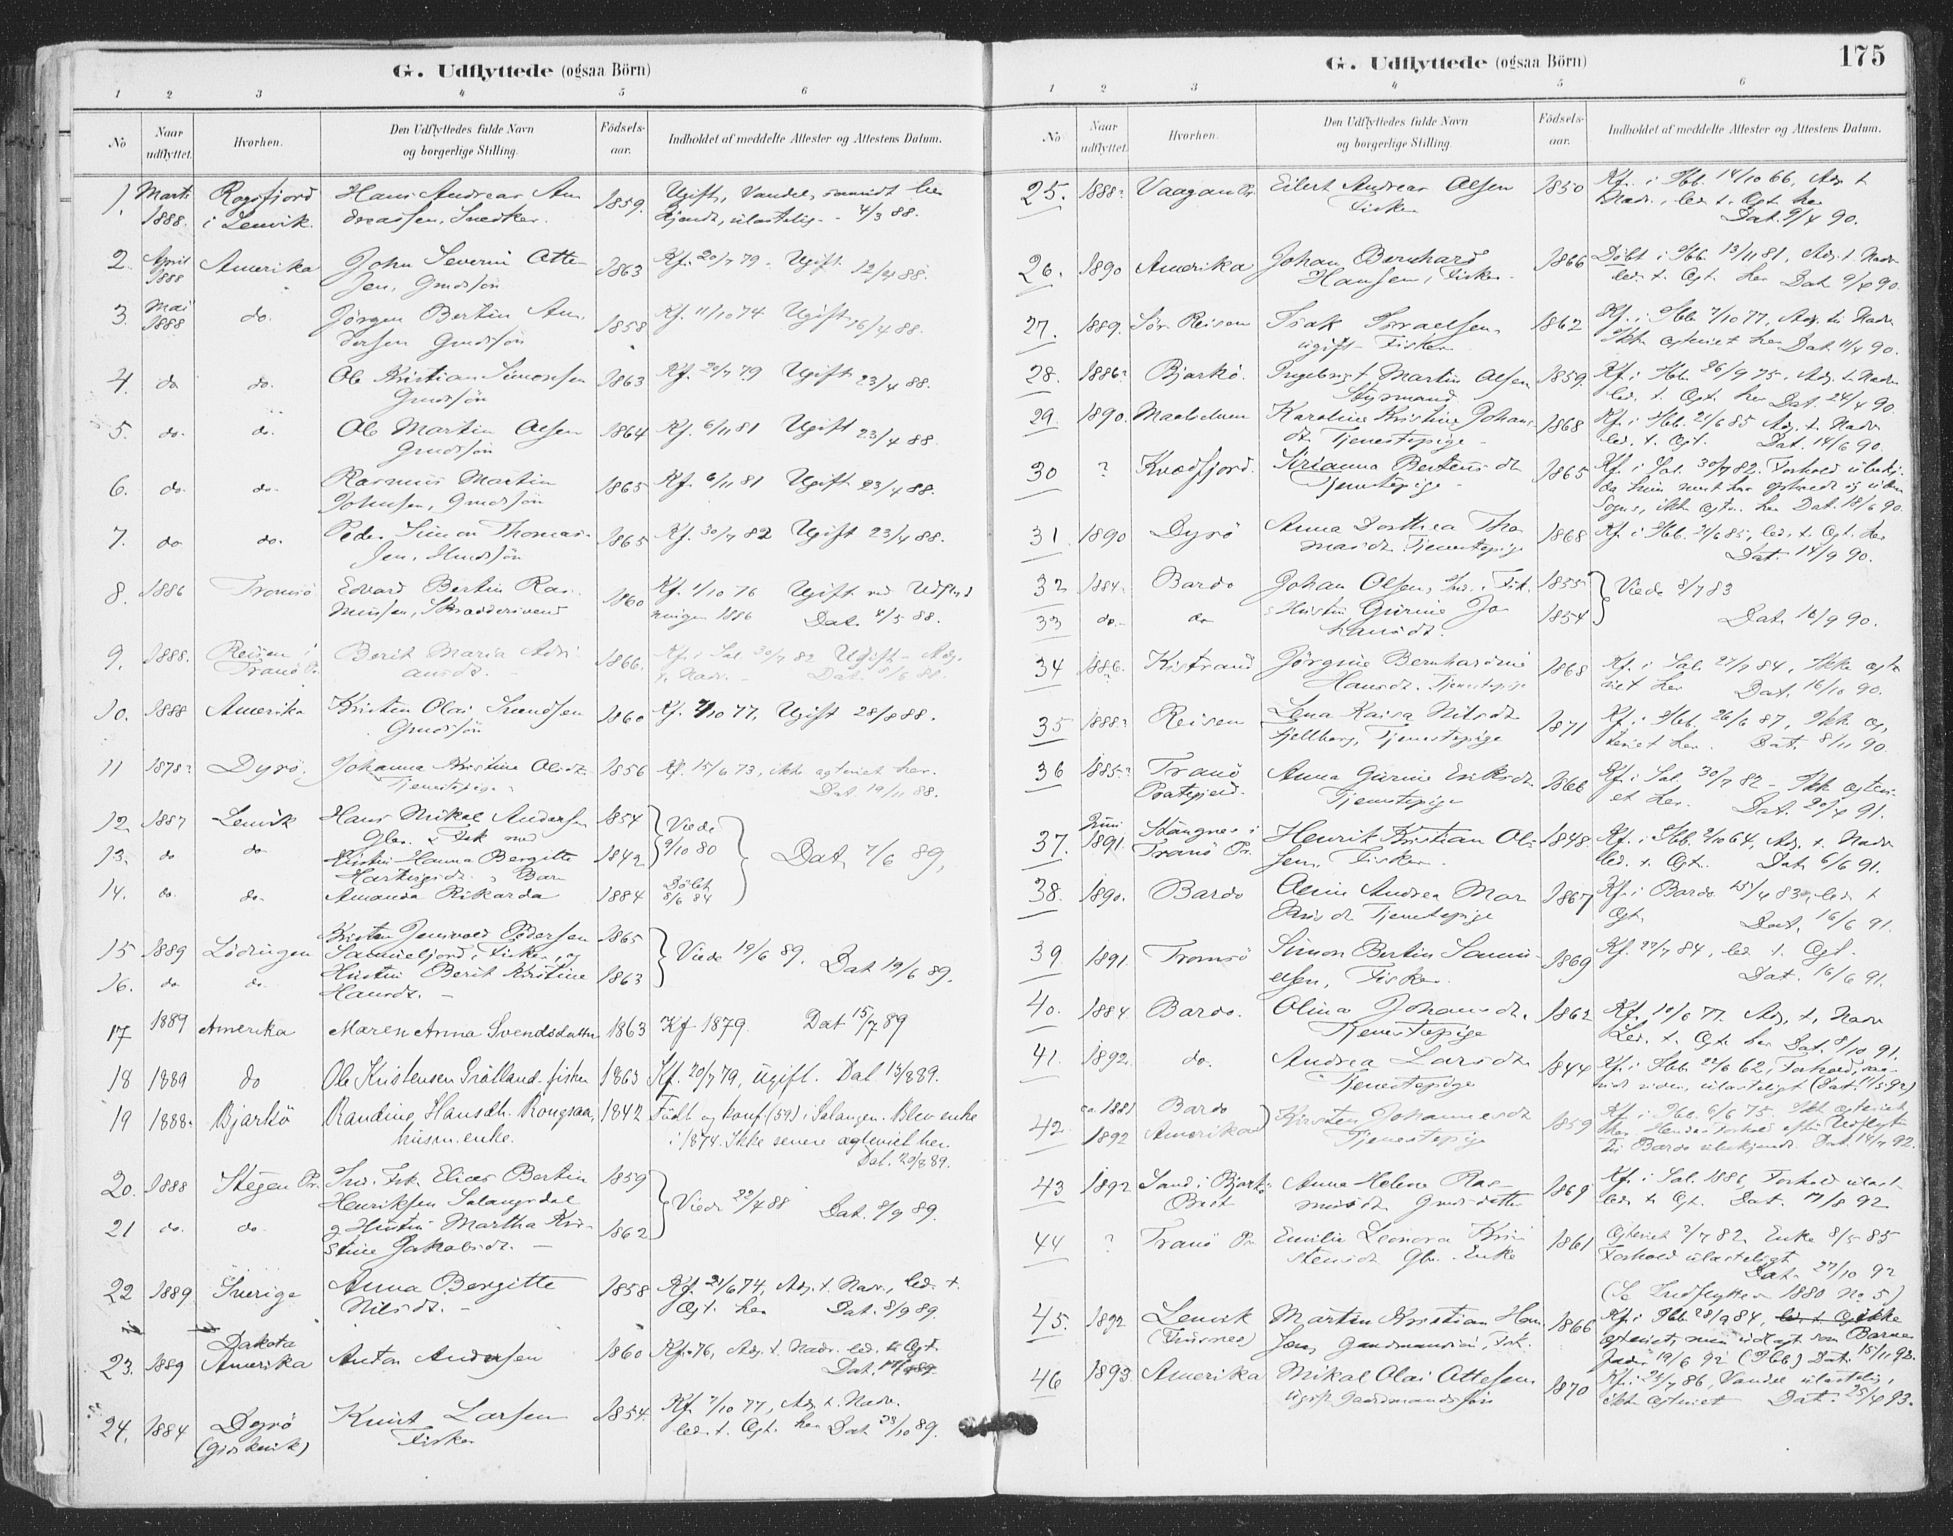 G. Udflyttede (ogsaa Börn)
1 2 3 4 5 6
No Naar udflyttet. Hvorhen. Den Udflyttedes fulde Navn og borgerlige Stilling. Födselsaar. Indholdet af meddelte Attester og Attestens Datum.
1. Marts 1888. Rossfjord i Lenvik. Hans Andreas Andreassen, Snedker. 1859. Ugift, Vandel, saavidt her kjendt, ulastelig - 4/3 88.
2. April 1888 Amerika John Severin Ottesen, Gmdssön 1863 Kf. 20/7 79 - Ugift 12/4 88.
3. Mai 1888 do. Jörgen Bertin Andersen Gmdssön 1858 Kf. 11/10 74 Ugift 16/4 88.
4. do do. Ole Kristian Simonsen Gmdssön 1863 Kf. 20/7 79 Ugift 23/4 88.
5. do. do. Ole Martin Olsen Gmdssön 1864 Kf. 6/11 81 Ugift 23/4 88.
6. do. do. Rasmus Martin Johnsen, Gmdssön 1865 Kf. 6/11 81 Ugift 23/4 88.
7. do do. Peder Simon Thomassen, Hmdssön 1865 Kf. 30/7 82 Ugift 23/4 88.
8. 1886 Tromsö Edvard Bertin Rasmussen, Skraddersvend 1860 Kf. 1/10 76 Ugift ved Udflytningen 1886 Dat. 4/5 88.
9. 1888. Reisen i Tranö Pr. Berit Maria Adriansdt. 1866. Kf. i Sal. 30/7 82 Ugift - Adg. t. Nadv. - Dat. 88.
10. 1888 Amerika Kristen Olai Svendsen Gmdssön 1860 Kf. 7/10 77. Ugift 28/8 88.
11 1878? Dyrö. Johanna Kristine Olsdt. Tjenestepige. 1856 Kf. 15/6 73, ikke agteriet her. Dat. 19/11 88.
12. 1887 Lenvik Hans Mikal Andersen Gbr. & Fisk. med 1854 Viede 9/10 80
13. do do Hustru Hanna Bergitte Hartvigsdt. & Barn 1842 Dat. 7/6 89,
14. do. do. Amanda Rikarda 1884 Döbt 8/6 84
15 1889 Lödingen Kristen Jensvold Pedersen Samuelfjord, Fisker, og 1865 Viede 19/6 89. Dat 19/6 89.
16. do do. Hustru Berit Kristine Hansdt. - 1863
17 1889 Amerika Maren Anna Svendsdatter 1863 Kf 1879. Dat 15/7 89
18 1889 do Ole Kristensen Grötland. fisker 1863 Kf. 20/7 79, ugift. Dat 13/8 89.
19 1888. Bjarkö Randine Hansdt. Rongsaa, husm. enke. 1842 Födt og konf (59) i Salangen. Blev enke i 1874. Ikke senere agteriet her. Dat. 20/8 89.
20. 1888 Stegen Pr. Ind. Fisk. Elias Bertin Henriksen Salangsdal 1859 Viede 22/4 88 Dat. 8/9 89.
21 do. do. & Hustru Martha Kristine Jakobsdt. - 1862
22 1889. Sverige Anna Bergitte Nilsdt. - 1858 Kf. 21/6 74, Adg. t. Nadv., led. t. Ægt. her Dat. 8/9 89.
23. 1889 Dakota Amerika Anton Andersen 1860 Kf. 76, Adg. t. Nadv. led. t. Ægt. Dat.
24. 1884 Dyrö Knut Larsen Fisker 1854. Kf. 7/10 77, Adg. t. Nadv. led. t. Ægt. her Dat 28/10 89.
175
G. Udflyttede (ogsaa Börn)
1 2 3 4 5 6
No Naar udflyttet. Hvorhen. Den Udflyttedes fulde Navn og borgerlige Stilling. Födselsaar. Indholdet af meddelte Attester og Attestens Datum.
25. 1888? Vaagan Pr. Eilert Andreas Olsen Fisker 1850 Kf. i Ibb. 14/10 66, Adg. t Nadv., led. t. Ægt. her Dat. 9/4 90.
26. 1890 Amerika Johan Bernhard Hansen, Fisker 1866 Döbt i Ibb. 13/11 81, Adg. t. Nadv led. t. Ægt. her Dat 9/4 90.
27. 1889. Sör Reisen Isak Israelsen, ugift Fisker 1862 Kf. i Ibb. 7/10 77, Adg. til Nadv Ikke agteriet her Dat. 11/4 90.
28. 1886? Bjarkö. Ingebrigt Martin Olsen Styrmand. 1859. Kf. i Ibb. 26/9 75, Adg. t. Nadv led. t. Ægt. her Dat. 24/4 90.
29. 1890. Maalselven Karoline Kristine Johansdt. Tjenestepige - 1868 Kf. i Ibb. 21/6 85 Adg. t. Nadv led. t. Ægt. Dat. 14/6 90.
30 ? Kvædfjord. Kirianna Bertinsdt. Tjenestepige - 1865 Kf. i Sal. 30/7 82. Forhold ubekj. da hun mest har opholdt sig uden Sogns, ikke agter. her Dat. 18/6 90.
31. 1890 Dyrö Anna Dorthea Thomasdt. Tjenestepige 1868 Kf. i Ibb. 21/6 85, led. t. Ægt. her Dat. 14/9 90.
32 1884. Bardo Johan Olsen, Ind. Fisk. 1855 Viede 8/7 83
33 do. do & Hustru Gurine Johansdt. 1854 Dat. 16/9 90.
34 1886? Kistrand Jörgine Bernhardine Hansdt. Tjenestepige 1868 Kf. i Sal. 27/7 84, Ikke agteriet her Dat. 16/10 90.
35 1888? Reisen Lena Kaisa Nilsdt. Fjellborg, Tjenestepige 1871 Kf. i Ibb. 26/6 87, Ikke agteriet her. Dat. 8/11 90.
36 1885? Tranö Prestegjeld. Anna Gurine Eriksdt. Tjenestepige 1866 Kf. i Sal. 30/7 82 - Ikke agteriet her. Dat. 20/4 91.
37. Juni 1891. Stangnes i Tranö Pr. Henrik Kristian Olsen, Fisker. 1848. Kf. i Ibb. 2/10 64, Adg. t. Nadv led. t. Ægt. Dat. 6/6 91.
38. 1890. Bardo Andrea Tjenestepige 1867 Kf. i Bardo 15/4 83, led. t Ægt. Dat. 16/6 91.
39. 1891. Tromsö Simon Bertin Samuelsen, Fisker. 1869 Kf. 27/7 84, led. t. Ægt. Dat. 16/6 91.
40. 1884 Bardo. Olina Johansdt. Tjenestepige 1862 Kf. 10/6 77. Adg. t. Nadv Led. t. Ægt. her Dat. 8/10 91.
41. 1892. do. Andrea Larsdt. Tjenestepige 1844 Kf. i Ibb. 22/6 62, Forhold, saavidt vides, ulasteligt (Dat. 11/5 92)
42. ca. 1881 1892 Bardo Amerika Kirsten Johannesdt. Tjenestepige 1859 Kf. i Ibb. 6/6 75. Ikke agteriet her. Hendes Forhold efter Udflytt. til Bardo ubekjendt. Dat. 14/7 92.
43 1892 Sand i Bjarkö Prest Anne Helene Rasmusdt. Gmdsdatter 1869 Kf. i Sal. 1886, Forhold ulast. led. t. Ægt. Dat. 17/8 92
44 ? Tranö Pr. Emilie Leonora Kristensdt. Gbr. Enke 1861 Ægteviet 2/7 82. Enke 8/5 85 Forhold ulasteligt Dat. 27/10 92 (Se Indflyttede 1880 No 5)
45. 1892 Lenvik Martin Kristian Hansen, Gaardmandssön, Fisk. 1866 Kf. i Ibb 28/9 84, led. t. Ægt ikke agteriet, men udlagt som Barnefader 19/6 92 (Ibb) Dat. 15/11 92.
46 1893. Amerika Mikal Olai Ottesen, ugift Gaardmandssön 1870 Kf. i 25/7 86, Vandel ulastelig, ikke agteriet Dat. 25/4 93.